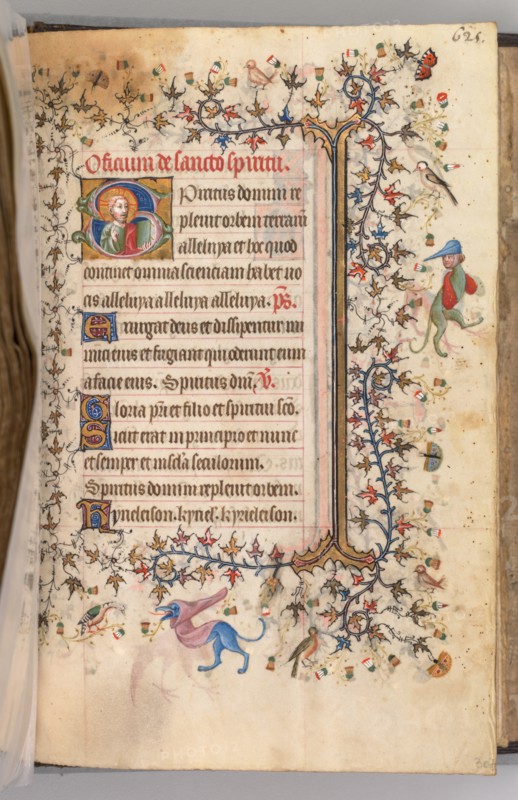 625.
Oficium de sancto spiritu.
Spiritus domini re
pleuit orbem terrarum
alleluya et hoc quod
continet omnia scienciam habet uo
cis alleluya alleluya alleluya. ps.
Exurgat deus et dissipentur ini
mici eius et fugiant qui oderunt eum
a facie eius. Spiritus dni. V.
Gloria pri et filio et spiritui sco.
Sicut erat in principio et nunc
et semper et in scla seculorum.
Spiritus domini repleuit orbem.
Kyrieleison. kyriel. kyrieleison.